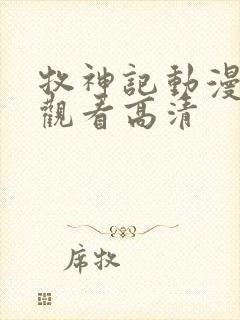 牧神記動漫
觀看高清
席牧